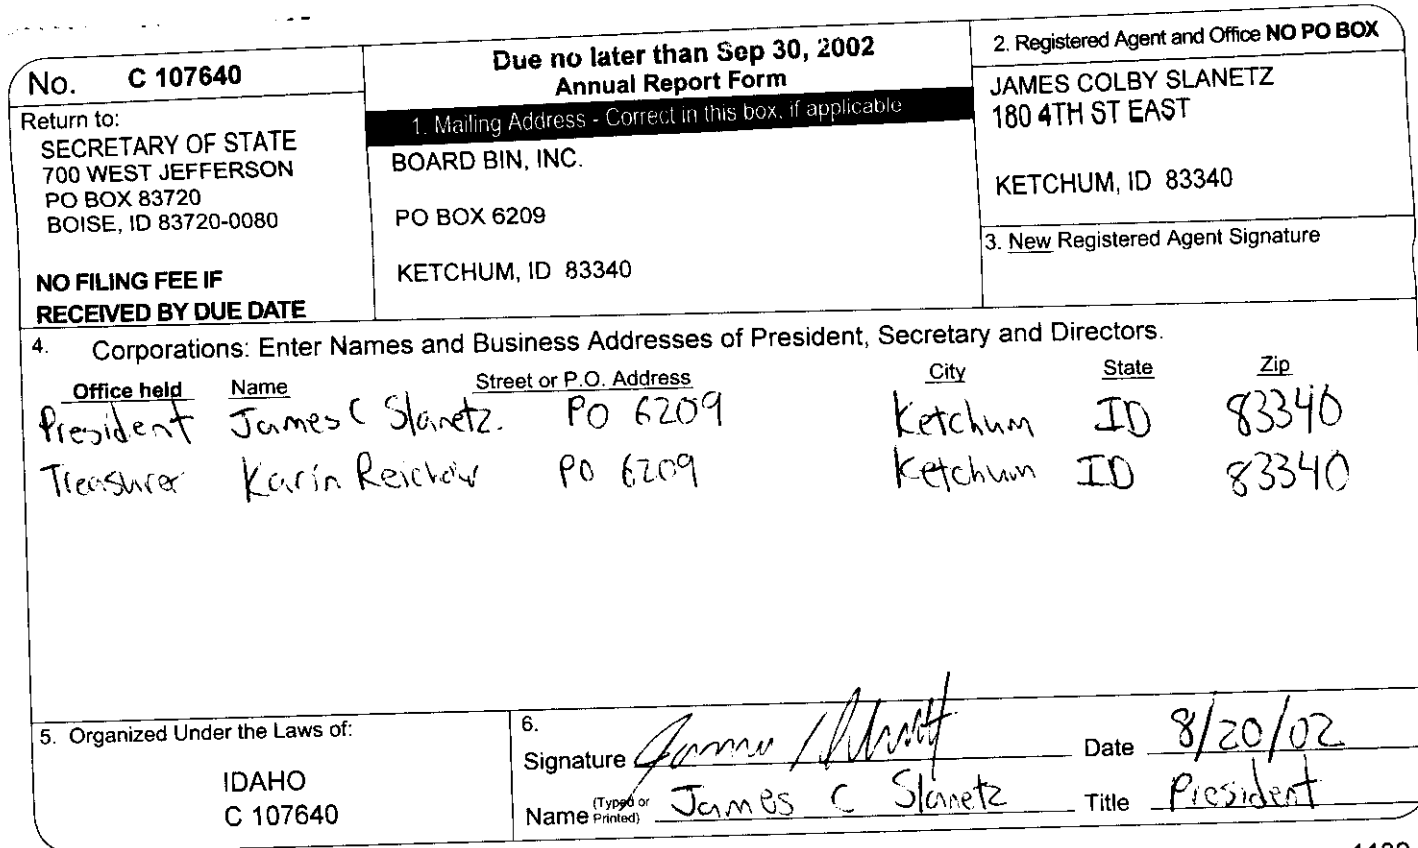 No. C 107640
Return to:
SECRETARY OF STATE
700 WEST JEFFERSON
PO BOX 83720
BOISE, ID 83720-0080
NO FILING FEE IF
RECEIVED BY DUE DATE
Due no later than Sep 30, 2002
Annual Report Form
1. Mailing Address - Correct in this box, if applicable
BOARD BIN, INC.
PO BOX 6209
KETCHUM, ID 83340
2. Registered Agent and Office NO PO BOX
JAMES COLBY SLANETZ
180 4TH ST EAST
KETCHUM, ID 83340
3. New Registered Agent Signature
4. Corporations: Enter Names and Business Addresses of President, Secretary and Directors.
Office held Name Street or P.O. Address City State Zip
President James C Slanetz. PO 6209 Ketchum ID 83340
Treasurer Karin PO 6209 Ketchum ID 83340
5. Organized Under the Laws of:
IDAHO
C 107640
6.
Signature Date 8/20/02
Name (Typed or Printed) James C Slanetz Title President